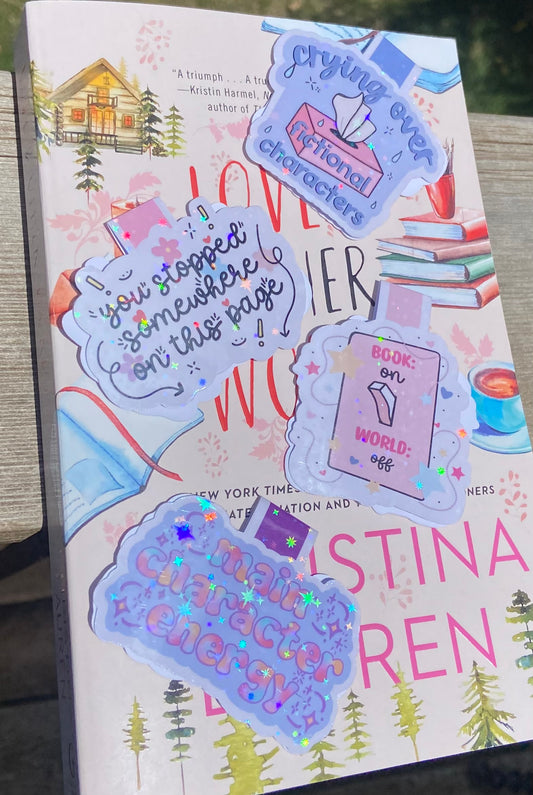 "A triumph . . . A tru
—Kristin Harmel, N
author of T
crying over
fictional
characters
LOVE
you stopped
somewhere
on this page
HER
BOOK:
on
WORLD:
off
WO
NEW YORK TIMES
NERS
INATION AND
main
character
energy
ISTINA
REN